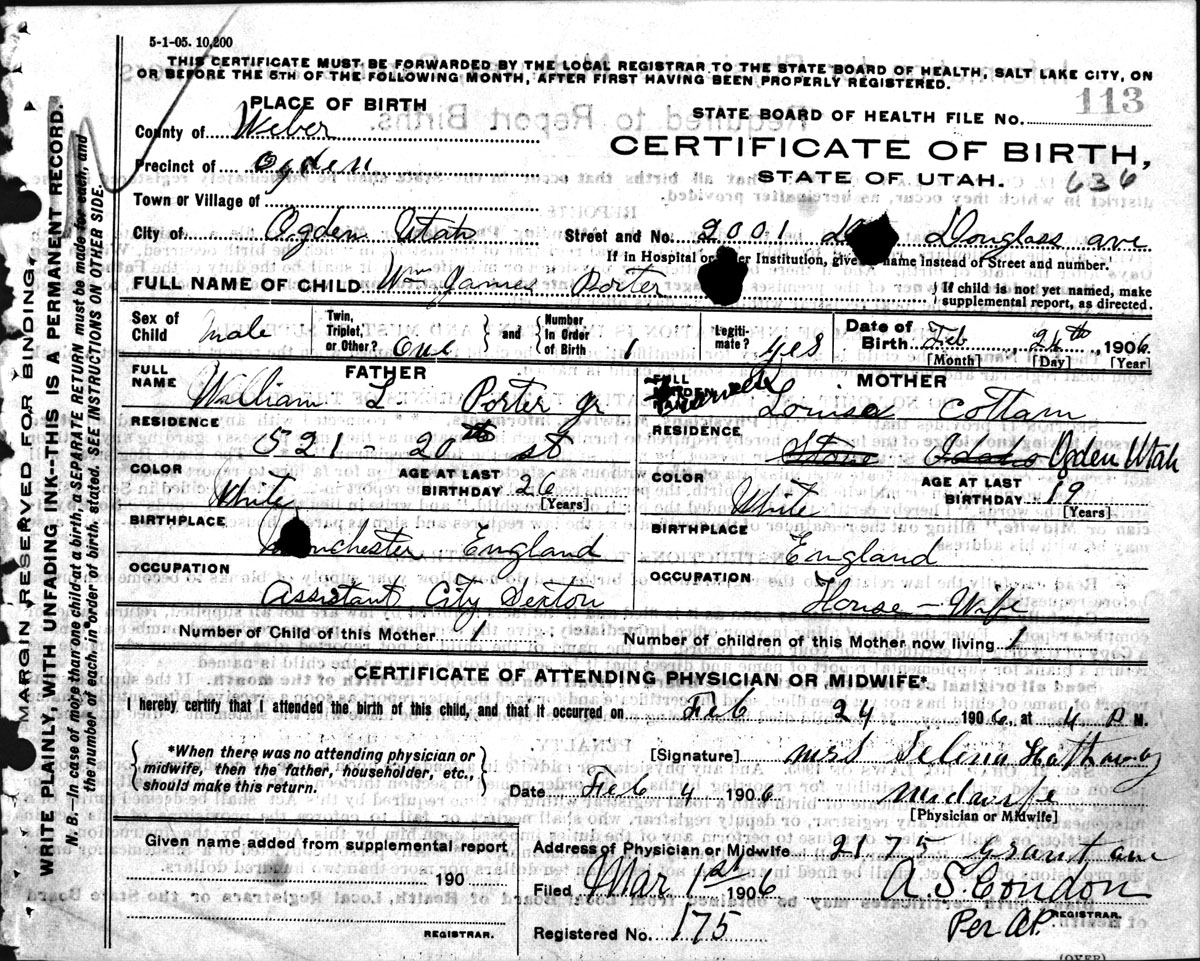 5-1-05. 10,200
THIS CERTIFICATE MUST BE FORWARDED BY THE LOCAL REGISTRAR TO THE STATE BOARD OF HEALTH, SALT LAKE CITY, ON
OR BEFORE THE 5TH OF THE FOLLOWING MONTH, AFTER FIRST HAVING BEEN PROPERLY REGISTERED.
PLACE OF BIRTH
STATE BOARD OF HEALTH FILE No. 113
County of Weber
CERTIFICATE OF BIRTH,
Precinct of Ogden
STATE OF UTAH. 636
Town or Village of
City of Ogden Utah Street and No. 2001 Douglass ave
If in Hospital or Institution, give name instead of Street and number.
FULL NAME OF CHILD Wm James Porter
If child is not yet named, make
supplemental report, as directed.
Sex of Child Male
Twin, Triplet, or Other? One
and
Number In Order of Birth 1
Legiti-mate? yes
Date of Birth Feb 24th, 1906
[Month] [Day] [Year]
FATHER
FULL NAME William L Porter jr
RESIDENCE
521 - 20th st
COLOR White
AGE AT LAST BIRTHDAY 26
[Years]
BIRTHPLACE
England
OCCUPATION
Assistant City Sexton
MOTHER
FULL
Louisa Cottam
RESIDENCE
Stone Idaho Ogden Utah
COLOR White
AGE AT LAST BIRTHDAY 19
[Years]
BIRTHPLACE
England
OCCUPATION
House - Wife
Number of Child of this Mother 1 Number of children of this Mother now living 1
CERTIFICATE OF ATTENDING PHYSICIAN OR MIDWIFE*
I hereby certify that I attended the birth of this child, and that it occurred on Feb 24 1906, at 4 P M.
*When there was no attending physician or
midwife, then the father, householder, etc.,
should make this return.
[Signature] Mrs Selena Hathaway
Date Feb 4 1906 Midwife
[Physician or Midwife]
Given name added from supplemental report
190
REGISTRAR.
Address of Physician or Midwife 2175 Grant ave
Filed Mar 1st 1906 A. S. Condon
REGISTRAR.
Registered No. 175 Per A.P.
(OVER)
MARGIN RESERVED FOR BINDING.
WRITE PLAINLY, WITH UNFADING INK--THIS IS A PERMANENT RECORD.
N. B.--In case of more than one child at a birth, a SEPARATE RETURN must be made for each, and
the number of each, in order of birth, stated. SEE INSTRUCTIONS ON OTHER SIDE.